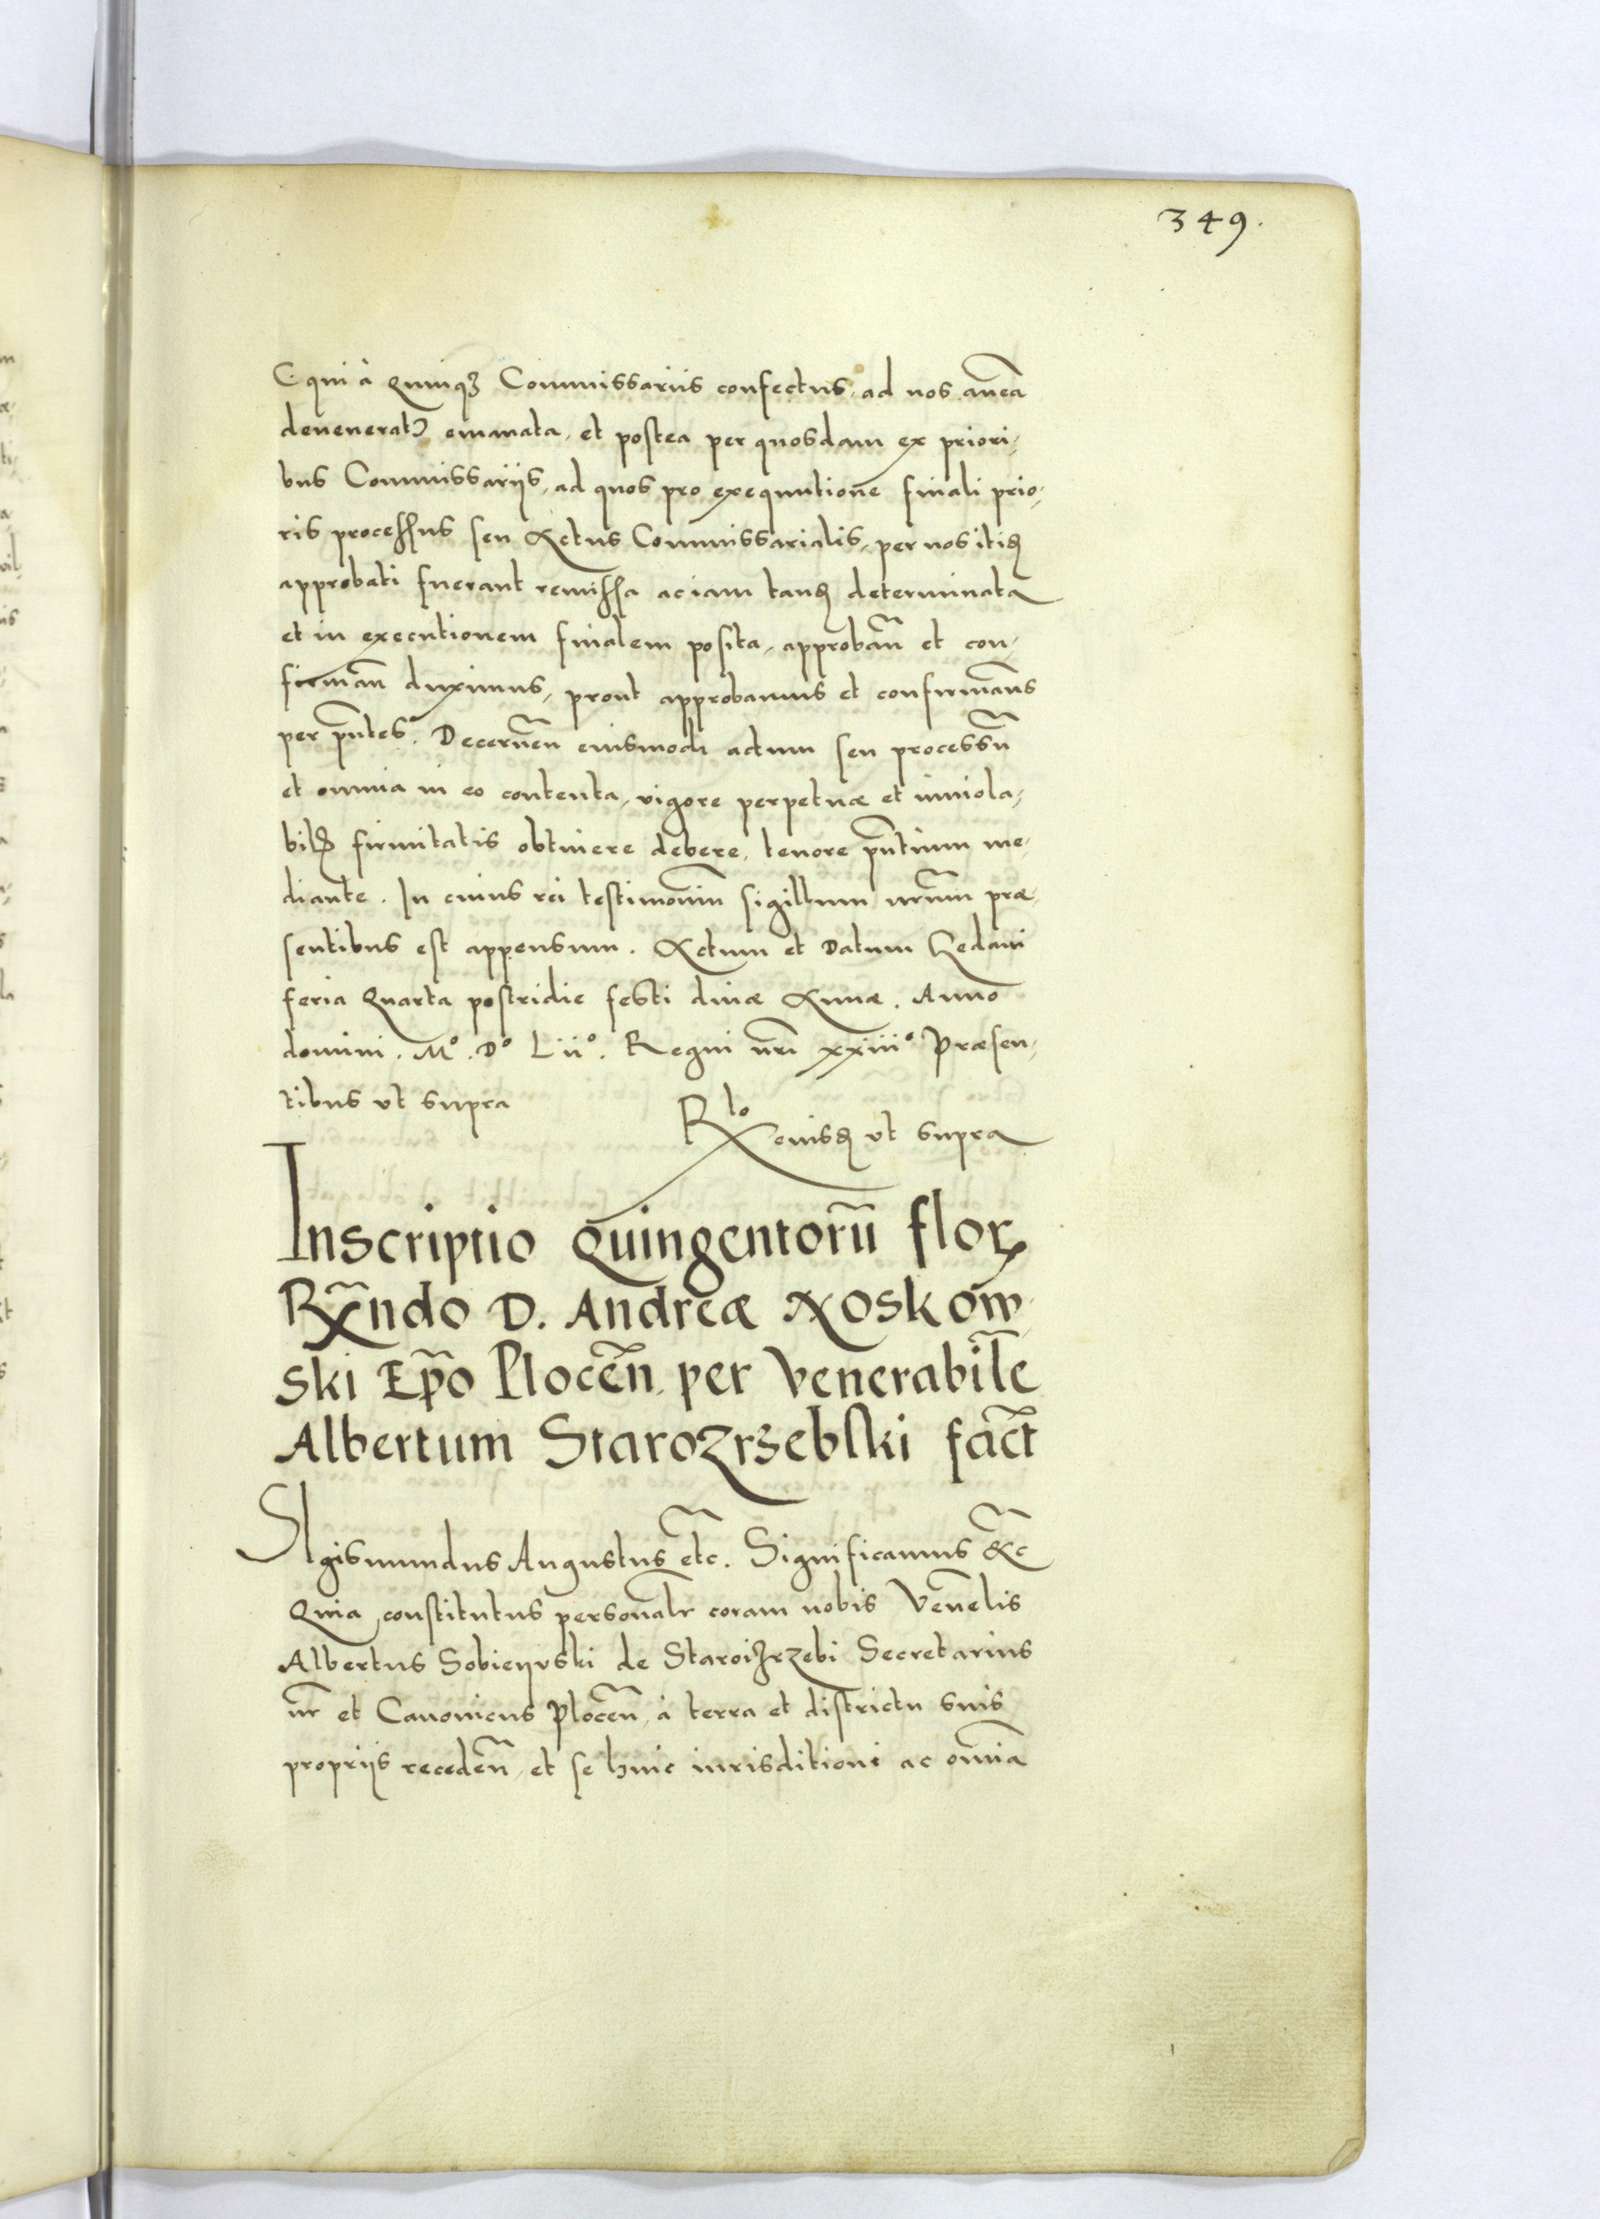 349.
C qui à Quinqȝ Commissariis confectus, ad nos anteā
deveneratɔ emanata, et postea per quosdam ex priori,
bus Commissarijs, ad quos pro exequutione finali prio,
ris processus seu Actus Commissarialis, per nos itid
approbati fuerant remissa ac iam tand determinata
et in executionem finalem posita, approbañ et con,
firmañ duximus, prout approbamus et confirmams
per pñtes. Decerneñ eiusmodi actum seu processū
et omnia in eo contenta, vigore perpetuæ et inviola,
bilis firmitatis obtinere debere, tenore pñtium me,
diante. In cuius rei testimoniū sigillum nrūm præ,
sentibus est appensum. Actum et Datum Gedani
feria Quarta postridie festi divæ Annæ. Anno
domini. Mº. Dº Lijº. Regni nri xxiiiº Præsen,
tibus ut supra
Rlo eiusd ut supra
Inscriptio Quingentorū florꝝ
Rx̃ndo D. Andreæ Noskow,
ski Ep̃o Plocēn, per Venerabilē
Albertum Starozrzebski fact
Sigismundus Augustus etc. Significamus &c
Quia constitutus personalr coram nobis Venelis
Albertus Sobieyuski de Staroizrzebi Secretarius
nr et Canonicus Ploceñ, à terra et districtu suis
propriis recedeñ, et se huic iurisditioni ac omnia